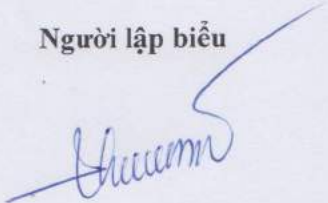 Người lập biểu